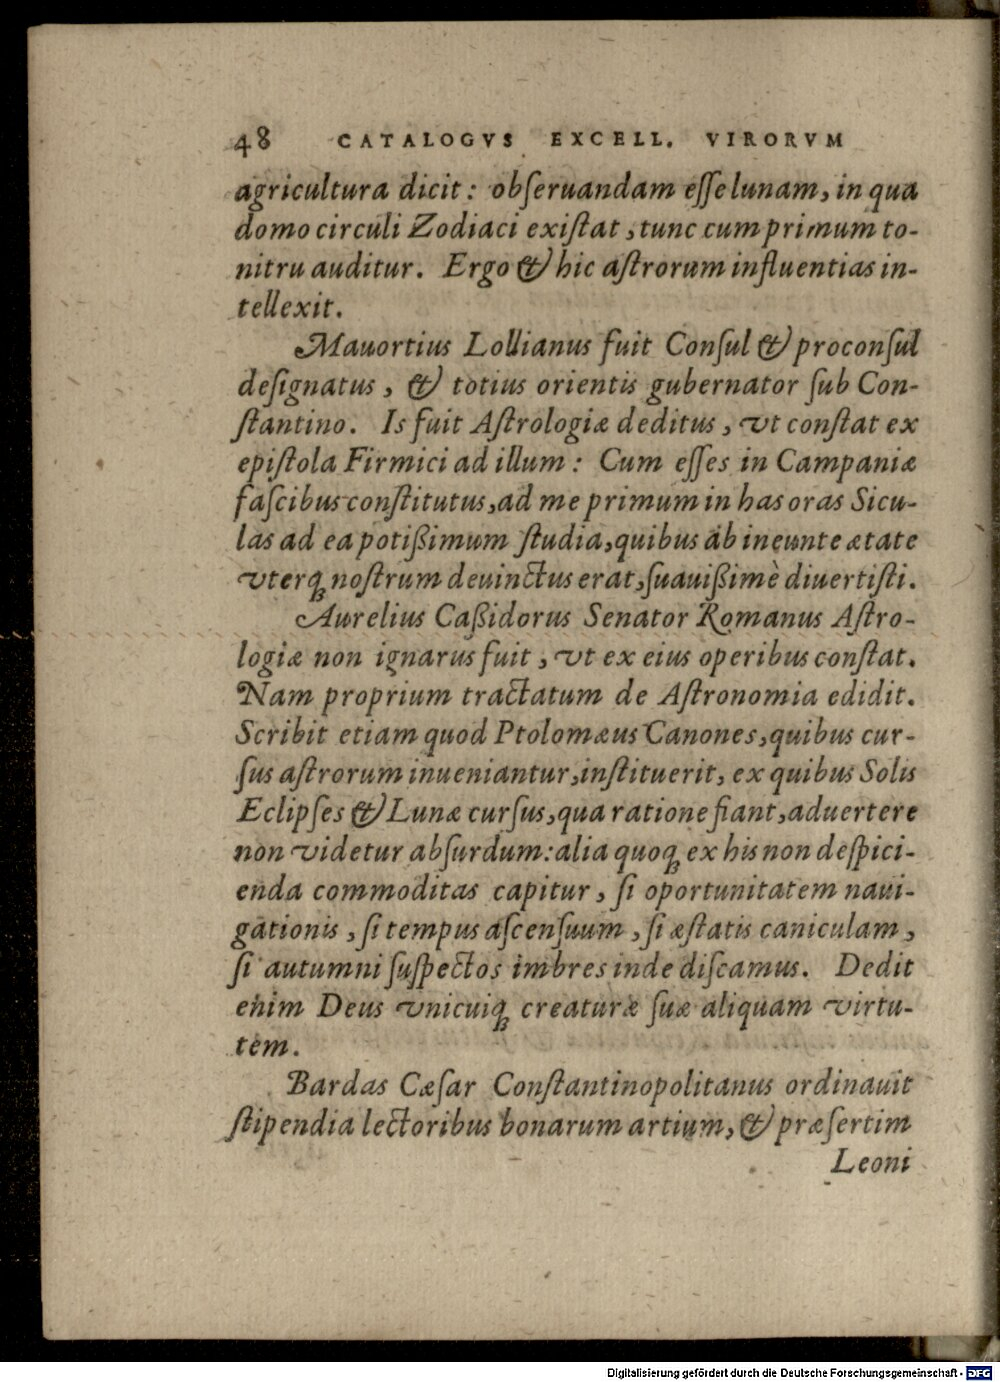 48 CATALOGVS EXCELL. VIRORVM
agricultura dicit: obſeruandam eſſe lunam, in qua
domo circuli Zodiaci exiſtat, tunc cum primum to-
nitru auditur. Ergo & hic aſtrorum influentias in-
tellexit.
Mauortius Lollianus fuit Conſul & proconſul
deſignatus, & totius orientis gubernator ſub Con-
ſtantino. Is fuit Aſtrologiæ deditus, vt conſtat ex
epiſtola Firmici ad illum: Cum eſſes in Campaniæ
faſcibus conſtitutus, ad me primum in has oras Sicu-
las ad ea potißimum ſtudia, quibus ab ineunte ætate
vterq; noſtrum deuinctus erat, ſuauißimè diuertiſti.
Aurelius Caßidorus Senator Romanus Aſtro-
logiæ non ignarus fuit, vt ex eius operibus conſtat.
Nam proprium tractatum de Aſtronomia edidit.
Scribit etiam quod Ptolomæus Canones, quibus cur-
ſus aſtrorum inueniantur, inſtituerit, ex quibus Solis
Eclipſes & Lunæ curſus, qua ratione fiant, aduertere
non videtur abſurdum: alia quoq; ex his non deſpici-
enda commoditas capitur, ſi oportunitatem naui-
gationis, ſi tempus aſcenſuum, ſi æſtatis caniculam,
ſi autumni ſuſpectos imbres inde diſcamus. Dedit
enim Deus vnicuiq; creaturæ ſuæ aliquam virtu-
tem.
Bardas Cæſar Conſtantinopolitanus ordinauit
ſtipendia lectoribus bonarum artium, & præſertim
Leoni
Digitalisierung gefördert durch die Deutsche Forschungsgemeinschaft - DFG